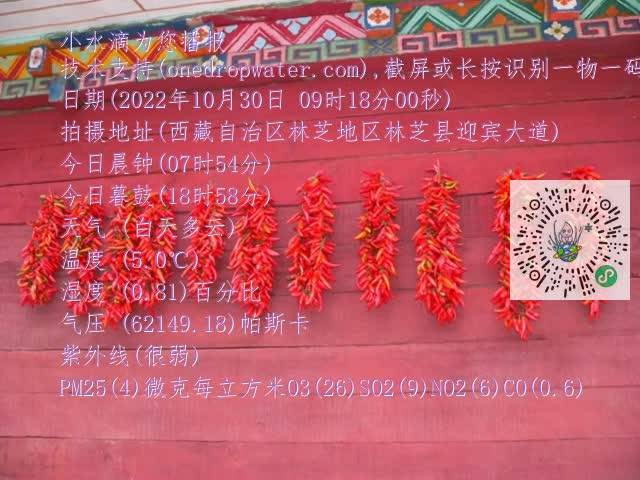 小水滴为您播报
技术支持(onedropwater.com),截屏或长按识别一物一码
日期(2022年10月30日 09时18分00秒)
拍摄地址(西藏自治区林芝地区林芝县迎宾大道)
今日晨钟(07时54分)
今日暮鼓(18时58分)
天气 (白天多云)
温度 (5.0℃)
湿度 (0.81)百分比
气压 (62149.18)帕斯卡
紫外线(很弱)
PM25(4)微克每立方米O3(26)SO2(9)NO2(6)CO(0.6)